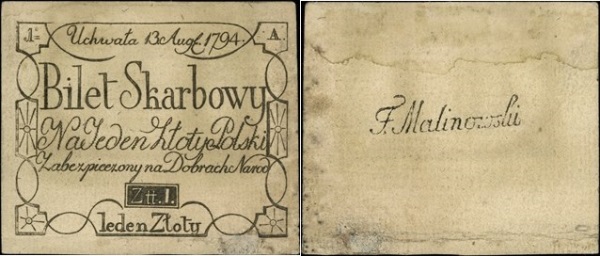 1= Uchwała 13. Augt. 1794. A.
Bilet Skarbowy
Na Jeden Złoty Polski
Zabezpieczony na Dobrach Narod
Ztt. 1.
Jeden Złoty
F. Malinowski